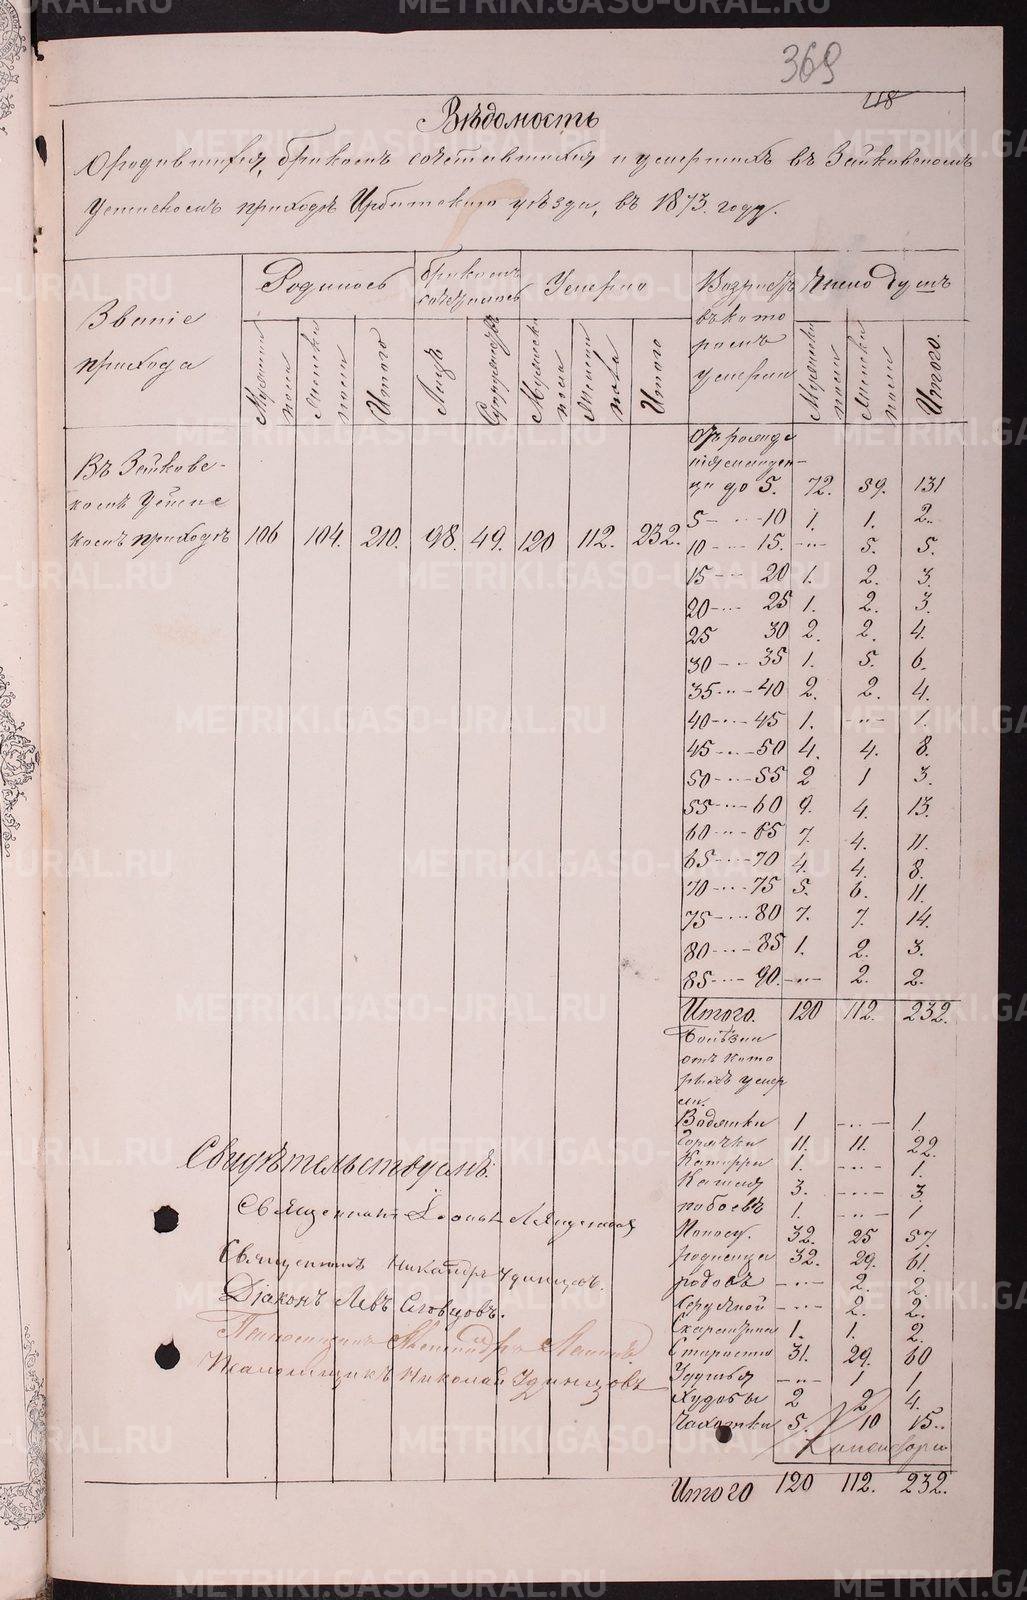 369
118
Вѣдомость
О родившихся, бракомъ сочетавшихся и умершихъ въ Зайковскомъ
Успенскомъ приходѣ Ирбитскаго уѣзда, въ 1873 году.
Званіе прихода
Родилось
Бракомъ сочеталось
Умерло
Возрастъ въ которомъ умерли
Число душъ
Мужеска пола
Женска пола
Итого
Лицъ
Супружествъ
Мужеска пола
Женска пола
Итого
Мужеска пола
Женска пола
Итого.
Въ Зайковс-
комъ Успенс
комъ приходѣ 106 104. 210. 98. 49. 120 112. 232.
Отъ рожде
нія младен-
ца до 5. 72. 59. 131
5 - ··· - 10 1. 1. 2.
10 ···· 15. -··- 5. 5.
15 -··· 20 1. 2. 3.
20 -··· 25 1. 2. 3.
25 30 2. 2. 4.
30 -··- 35 1. 5. 6.
35 -··- 40 2. 2. 4.
40 -··- 45 1. -··- 1.
45 -··- 50 4. 4. 8.
50 -··- 55 2 1 3.
55 -··- 60 9. 4. 13.
60 -··- 65 7. 4. 11.
65 -··- 70 4. 4. 8.
70 -··- 75 5. 6. 11.
75 -··- 80 7. 7. 14.
80 -··- 85 1. 2. 3.
85 -··- 90. -··- 2. 2.
Итого. 120 112. 232.
Болѣзни
отъ кото
рыхъ умер
ли.
Водянки 1 -··- 1.
Горячки 11. 11. 22.
Катарри 1. -··- 1.
Кашля 3. -··- 3.
побоевъ 1. -··- 1
Поноса. 32. 25 57.
родимца 32. 29. 61.
родовъ -··- 2. 2.
-··- 2. 2.
Скарлатина 1. 1. 2.
Старости 31. 29. 60
Удушья -··- 1 1.
Худобы 2 2 4.
Чахотки 5. 10 15.
Итого 120 112. 232.
Свидѣтельствуемъ:
Священникъ
Священникъ Никандръ Удинцовъ.
Діаконъ Левъ Словцовъ.
Псаломщикъ Александръ
Псаломщикъ Николай Удинцовъ
METRIKI.GASO-URAL.RU